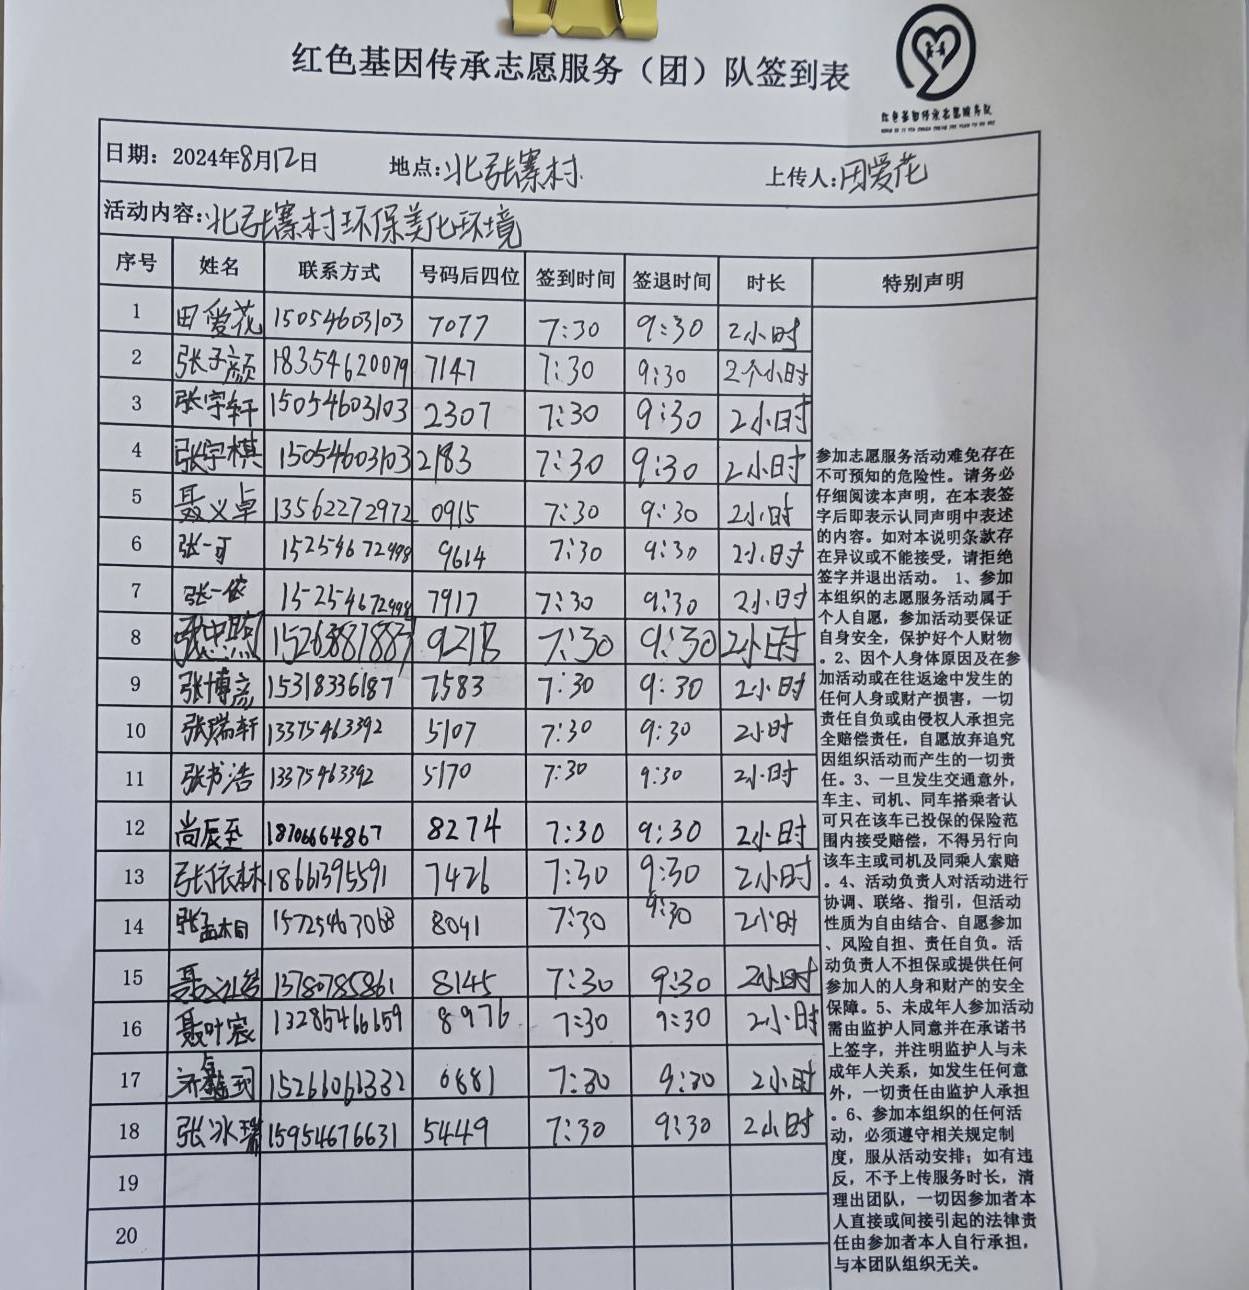 红色基因传承志愿服务（团）队签到表
红色基因传承志愿服务队
日期：2024年8月12日 地点：北张寨村 上传人：田爱花
活动内容：北张寨村环保美化环境
序号 姓名 联系方式 号码后四位 签到时间 签退时间 时长 特别声明
1 田爱花 15054603103 7077 7:30 9:30 2小时
2 张子颜 18354620079 7147 7:30 9:30 2个小时
3 张宇轩 15054603103 2307 7:30 9:30 2小时
4 张宇棋 15054603103 2183 7:30 9:30 2小时
5 聂义卓 13562272972 0915 7:30 9:30 2小时
6 张一可 15254672498 9614 7:30 9:30 2小时
7 张一依 15254672498 7917 7:30 9:30 2小时
8 15263887883 7:30 9:30 2小时
9 张博彦 15318336187 7583 7:30 9:30 2小时
10 张瑞轩 13375463392 5107 7:30 9:30 2小时
11 张书浩 13375463392 5170 7:30 9:30 2小时
12 尚辰至 18706664867 8274 7:30 9:30 2小时
13 张依林 18661395591 7426 7:30 9:30 2小时
14 15725463068 8041 7:30 9:30 2小时
15 13780785861 8145 7:30 9:30 2小时
16 聂叶宸 13285466659 8976 7:30 9:30 2小时
17 15266061332 0881 7:30 9:30 2小时
18 张冰瑞 15954676631 5449 7:30 9:30 2小时
19
20
参加志愿服务活动难免存在
不可预知的危险性。请务必
仔细阅读本声明，在本表签
字后即表示认同声明中表述
的内容。如对本说明条款存
在异议或不能接受，请拒绝
签字并退出活动。1、参加
本组织的志愿服务活动属于
个人自愿，参加活动要保证
自身安全，保护好个人财物
。2、因个人身体原因及在参
加活动或在往返途中发生的
任何人身或财产损害，一切
责任自负或由侵权人承担完
全赔偿责任，自愿放弃追究
因组织活动而产生的一切责
任。3、一旦发生交通意外，
车主、司机、同车搭乘者认
可只在该车已投保的保险范
围内接受赔偿，不得另行向
该车主或司机及同乘人索赔
。4、活动负责人对活动进行
协调、联络、指引，但活动
性质为自由结合、自愿参加
、风险自担、责任自负。活
动负责人不担保或提供任何
参加人的人身和财产的安全
保障。5、未成年人参加活动
需由监护人同意并在承诺书
上签字，并注明监护人与未
成年人关系，如发生任何意
外，一切责任由监护人承担
。6、参加本组织的任何活
动，必须遵守相关规定制
度，服从活动安排；如有违
反，不予上传服务时长，清
理出团队，一切因参加者本
人直接或间接引起的法律责
任由参加者本人自行承担，
与本团队组织无关。